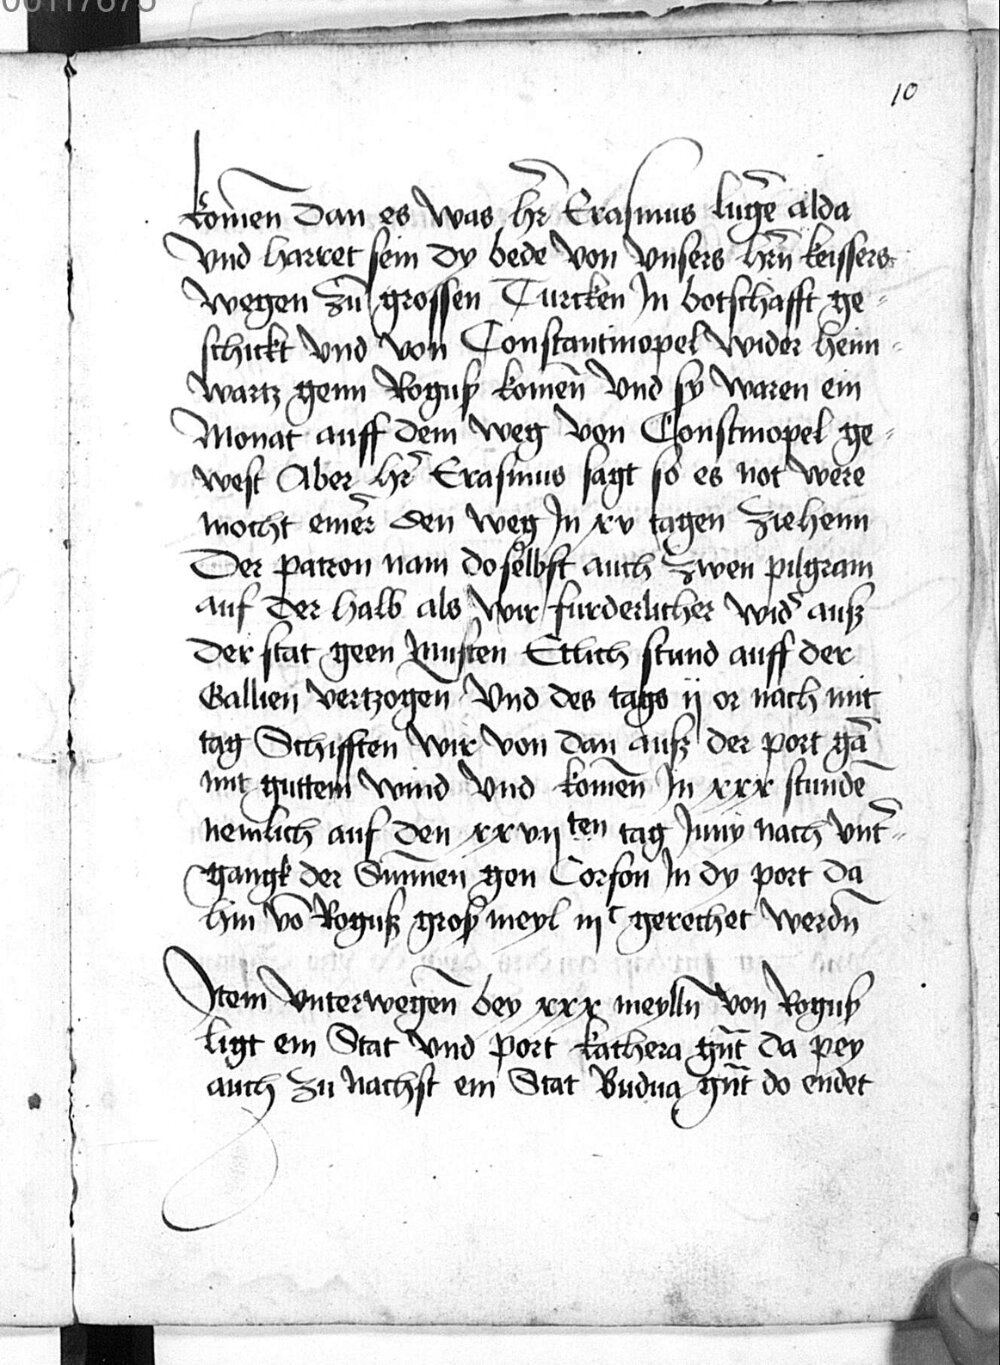 00117675
10
komen̄ Dan es was hr̄ Erasmus luḡe alda
vnd harret sein dy bede von vnsers hrn̄ keissers
wegen zu grossen Turcken In botschafft ge-
schickt vnd von Constantinopel wider heim-
wartz genn Roguß komen̄ vnd sy waren ein
Monat auff dem weg von Constinopel ge-
west Aber hr̄ Erasmus sagt so es not were
mocht einer den weg In xv tagen ziehenn
Der patron nam doselbst auch zwen pilgram
auf der halb als wir furderlicher wid͛ auß
der stat geen musten Etlich stund auff der
Gallien vertzogen vnd des tags ij or nach mit
tag Schifften wir von dan auß der port gā
mit guttem wind vnd komen̄ In xxx stundē
nemlich auf den xxvijten tag Juny nach vnt͛-
gangk der Sun̄nen gen Corfon In dy port da
hin vō Roguß groß meyl iijc gerechet werdn̄
Item vnterwegen̄ bey xxx meylln̄ von Roguß
ligt ein Stat vnd port kathera gn̄t da pey
auch zu nachst ein Stat Budua gn̄t do endet